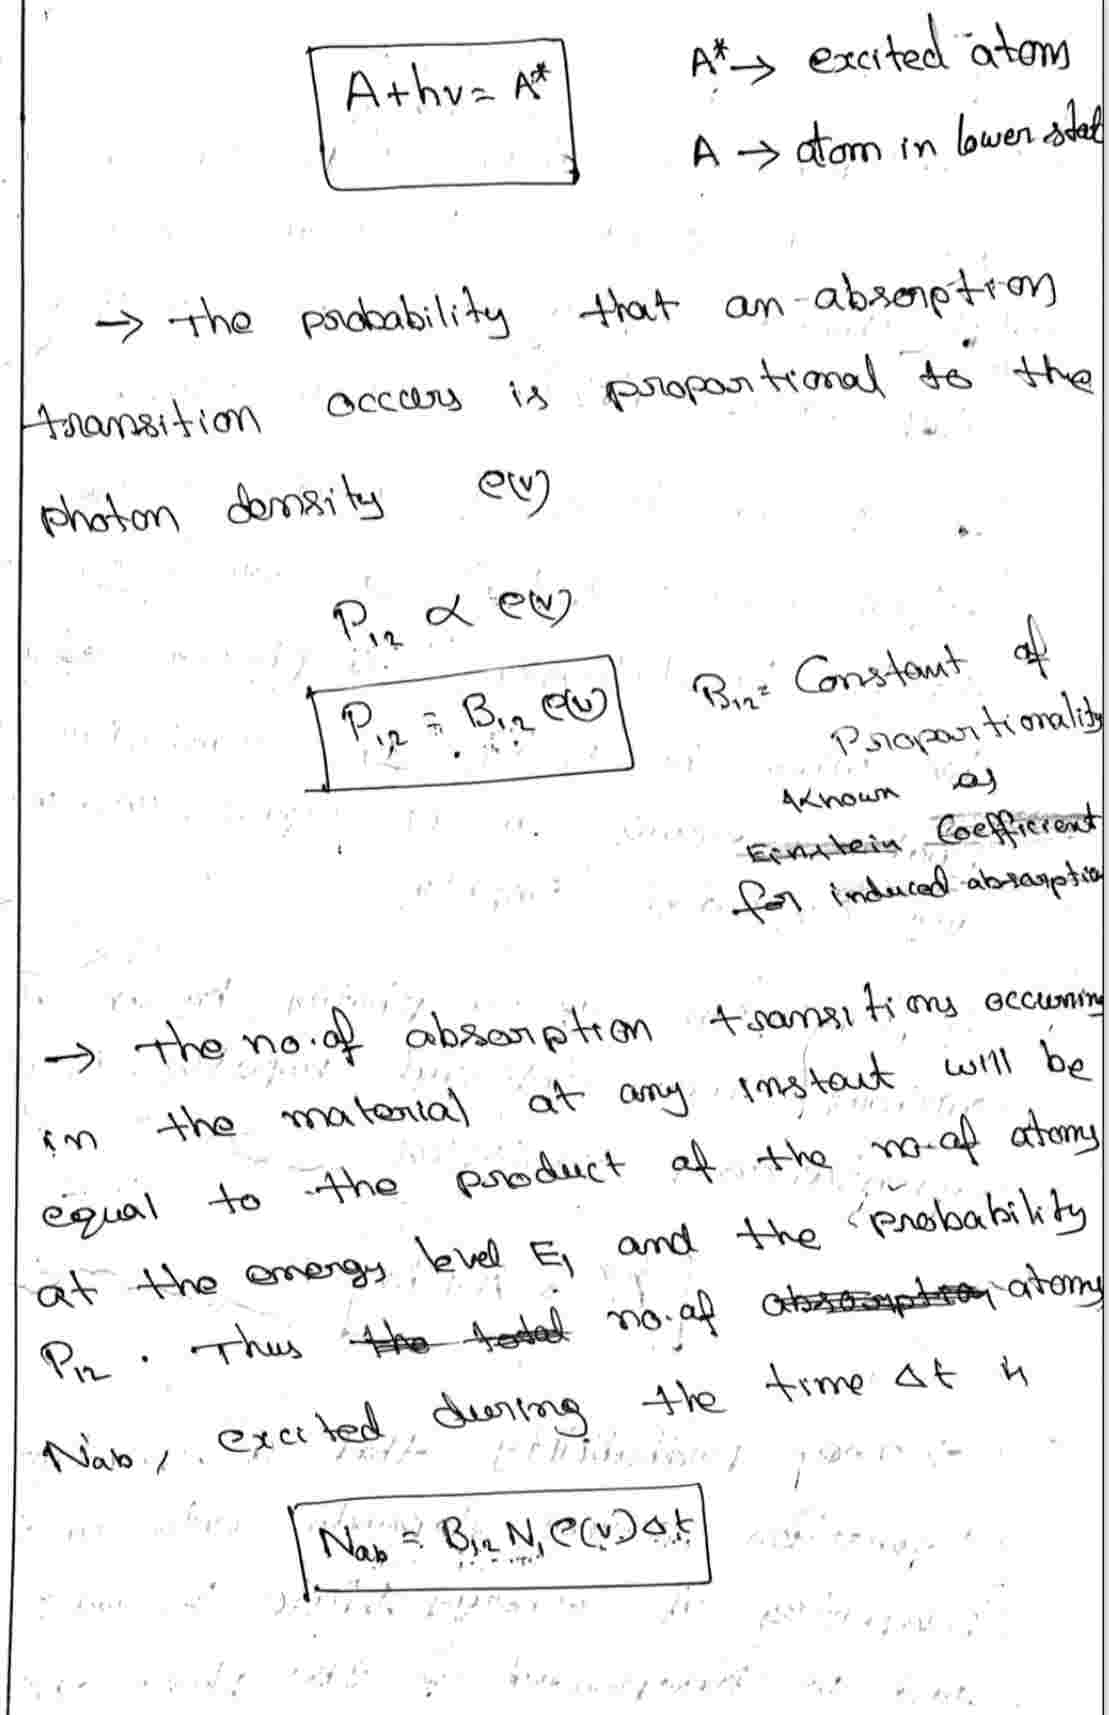 A + hν = A*
A* → excited atom
A → atom in lower stat
→ The probability that an absorption
transition occurs is proportional to the
photon density ρ(ν)
P₁₂ ∝ ρ(ν)
P₁₂ = B₁₂ ρ(ν)
B₁₂ = Constant of
Proportionality
known as
Einstein Coefficient
for induced absorptio
→ The no. of absorption transitions occurring
in the material at any instant will be
equal to the product of the no. of atoms
at the energy level E₁ and the probability
P₁₂. Thus the total no. of absorption atoms
Nab, excited during the time Δt is
Nab = B₁₂ N₁ ρ(ν) Δt